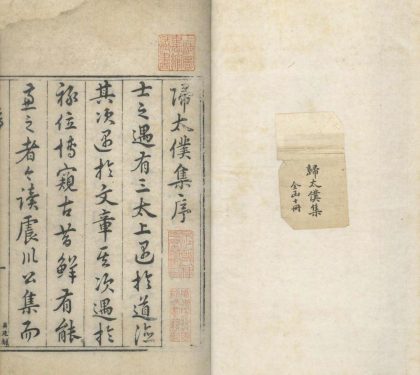 歸太僕集
全函十冊
歸太僕集序
士之遇有三太上遇於道德
其次遇於文章其次遇於
祿位博窺古昔鮮有能
兼之者今讀震川公集而